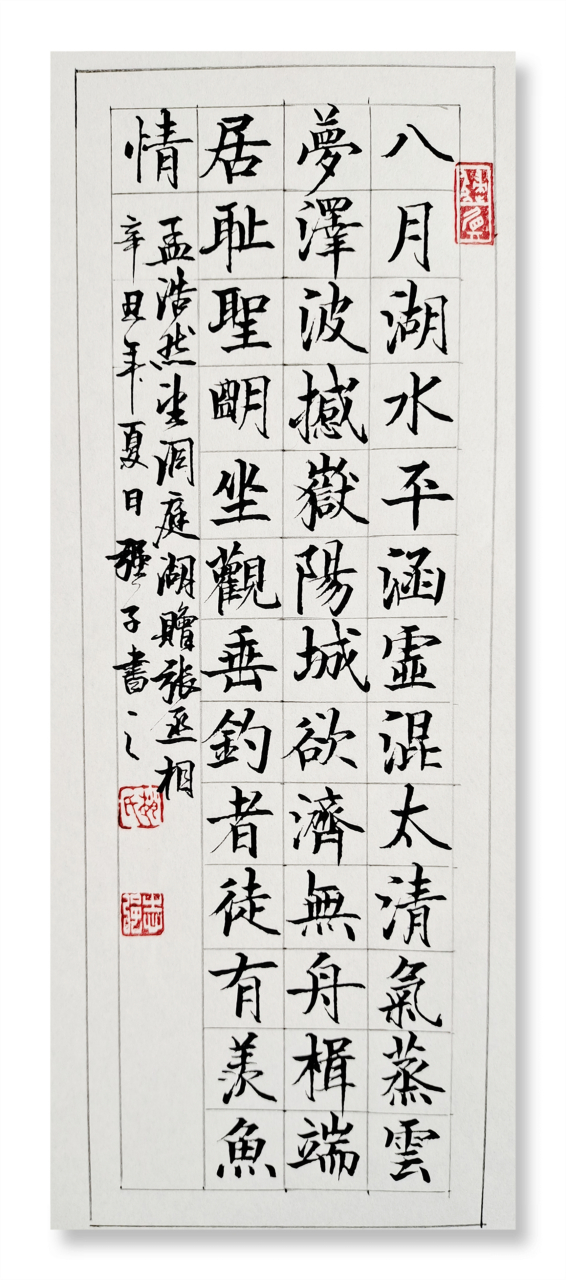 八月湖水平涵虛混太清氣蒸雲
夢澤波撼嶽陽城欲濟無舟楫端
居耻聖朙坐觀垂釣者徒有羨魚
情
孟浩然望洞庭湖贈張丞相
辛丑年夏日強子書之